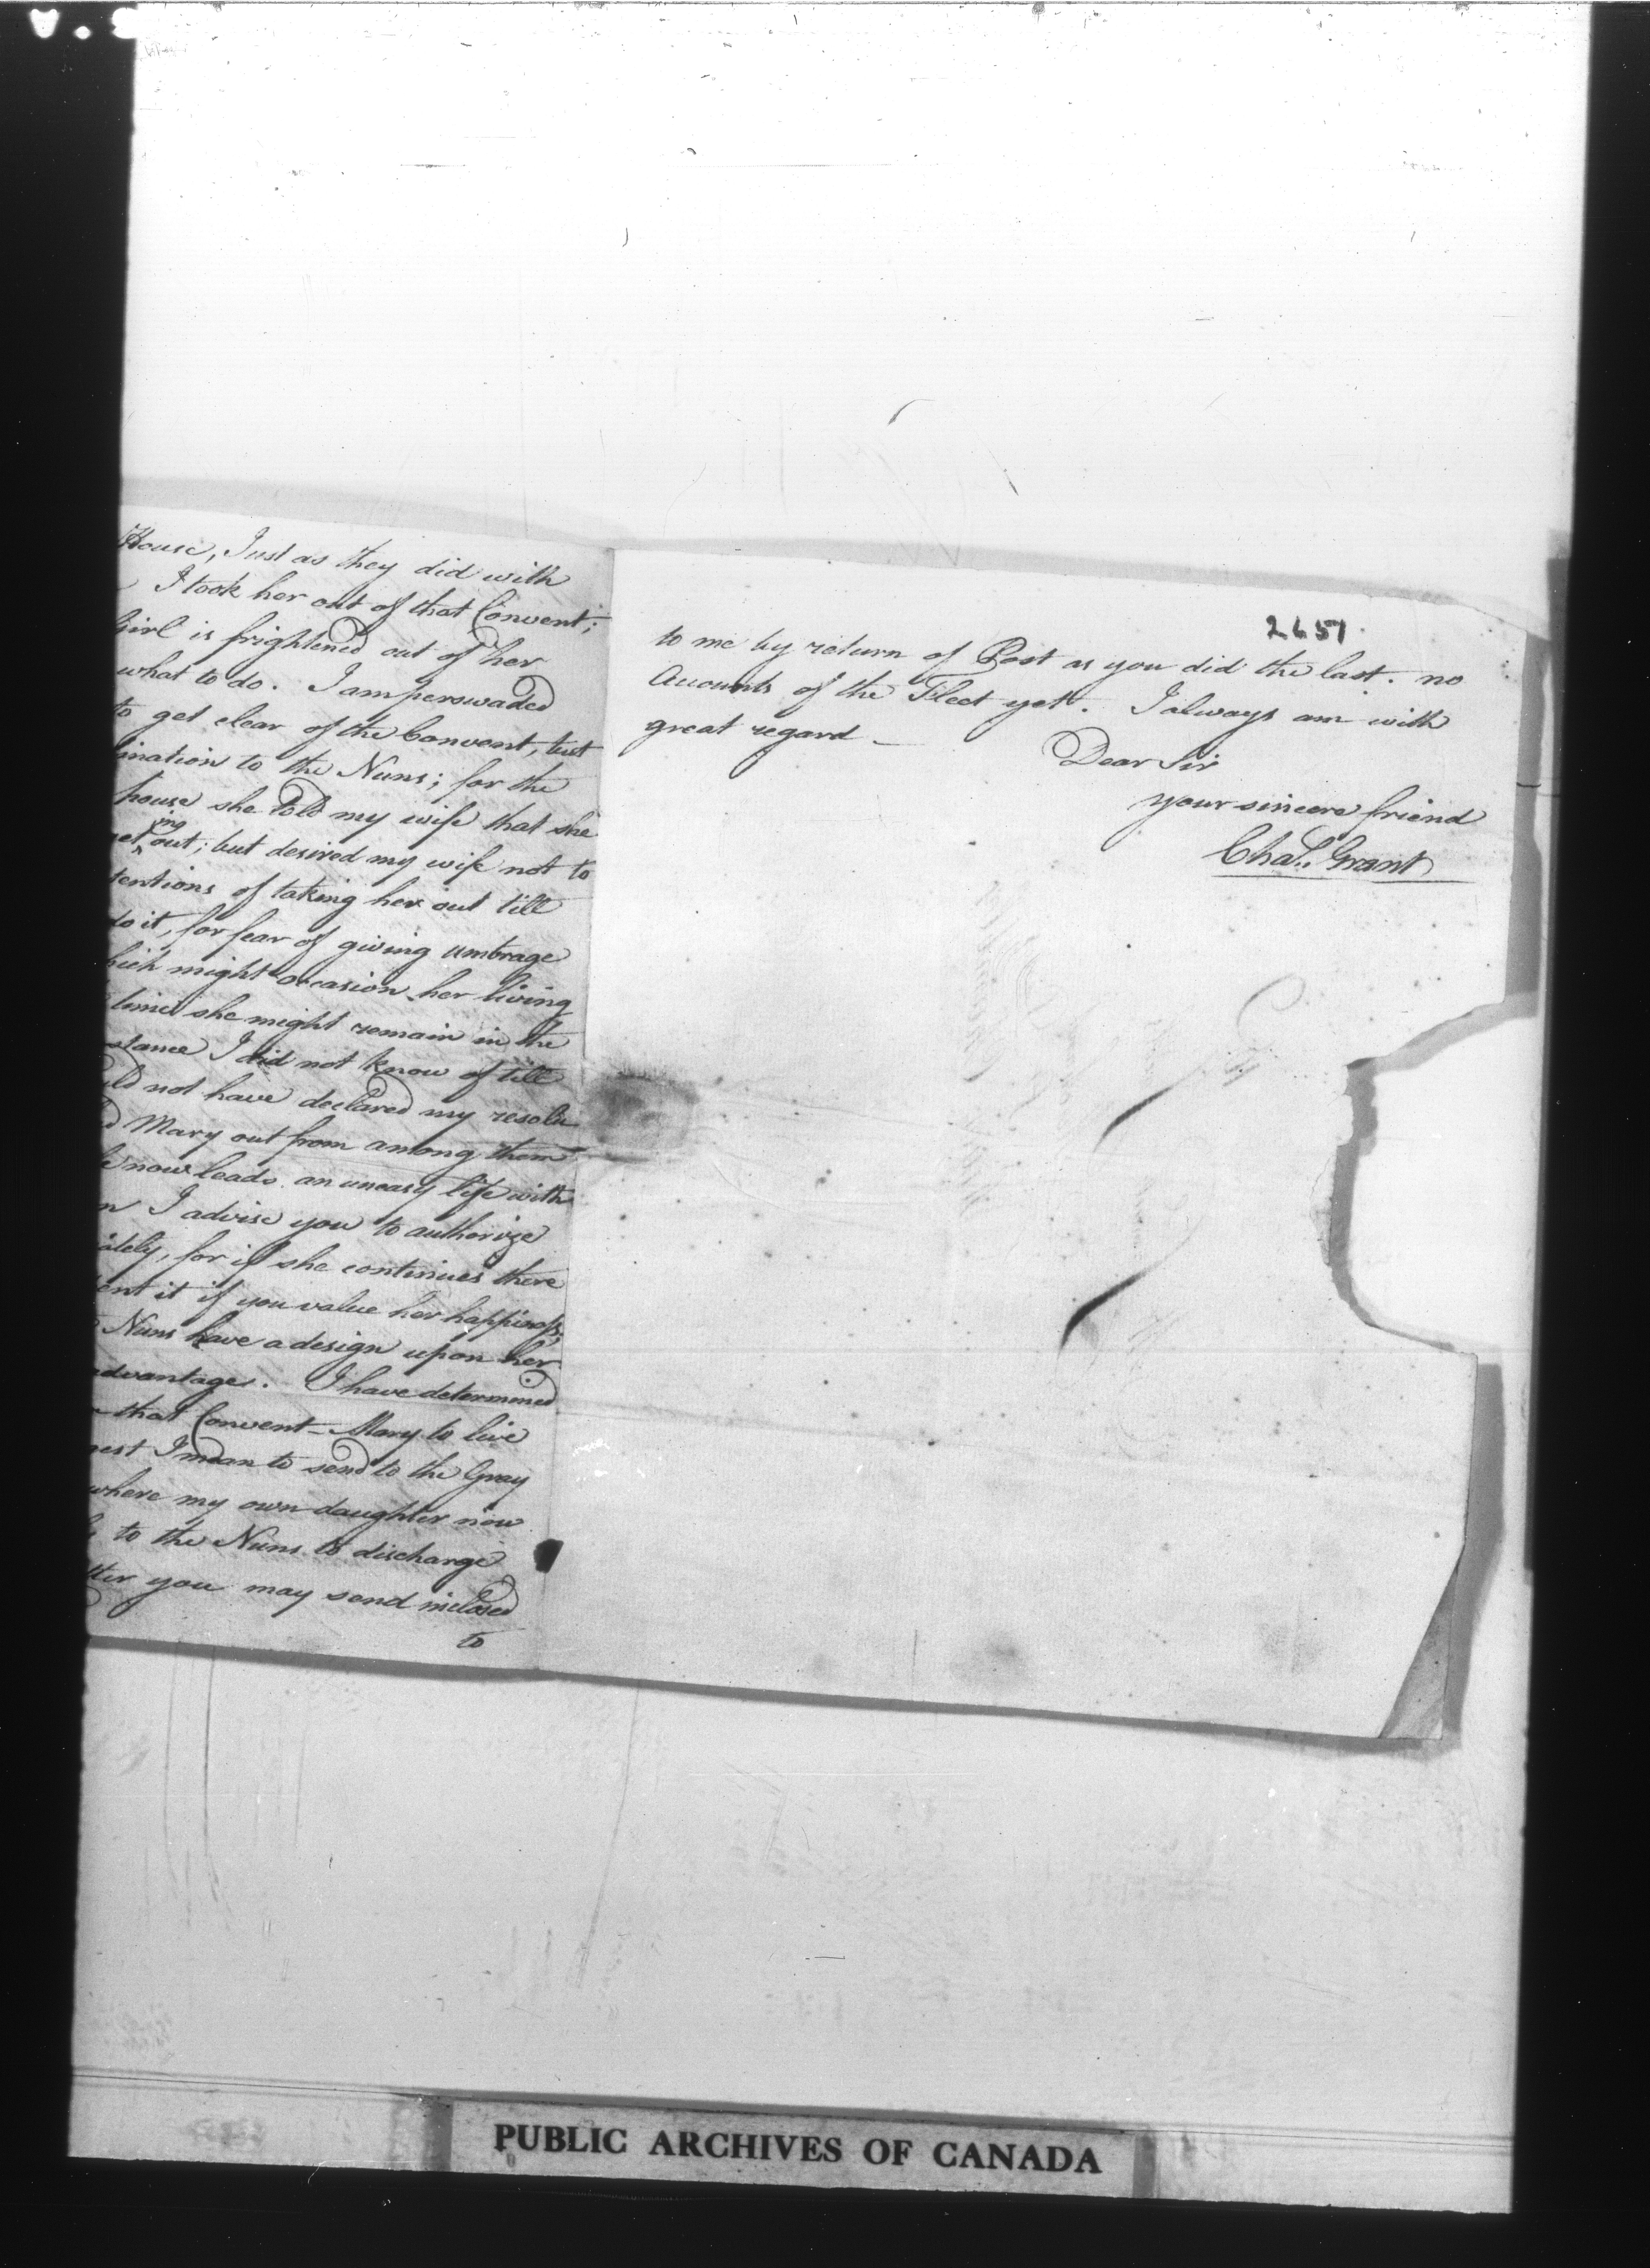 House, Just as they did with
I took her out of that Convent;
Girl is frightened out of her
what to do. I am perswaded
to get clear of the Convent, but
ination to the Nuns; for the
house she told my wife that she
get^ing out; but desired my wife not to
tentions of taking her out till
do it, for fear of giving umbrage
hich might occasion her living
time she might remain in the
stance I did not know of till
uld not have declared my resolu
d Mary out from among them
e now leads an uneasy life with
n I advise you to authorize
ately, for if she continues there
ent it if you value her happiness,
Nuns have a design upon her
advantage. I have determined
that Convent - Mary to live
nest I mean to send to the Gray
where my own daughter now
to the Nuns to discharge
tter you may send inclosed
to
2651
to me by return of Post as you did the last. no
Accounts of the Fleet yet. I always am with
great regard -
Dear Sir
your sincere friend
Chas. Grant
PUBLIC ARCHIVES OF CANADA